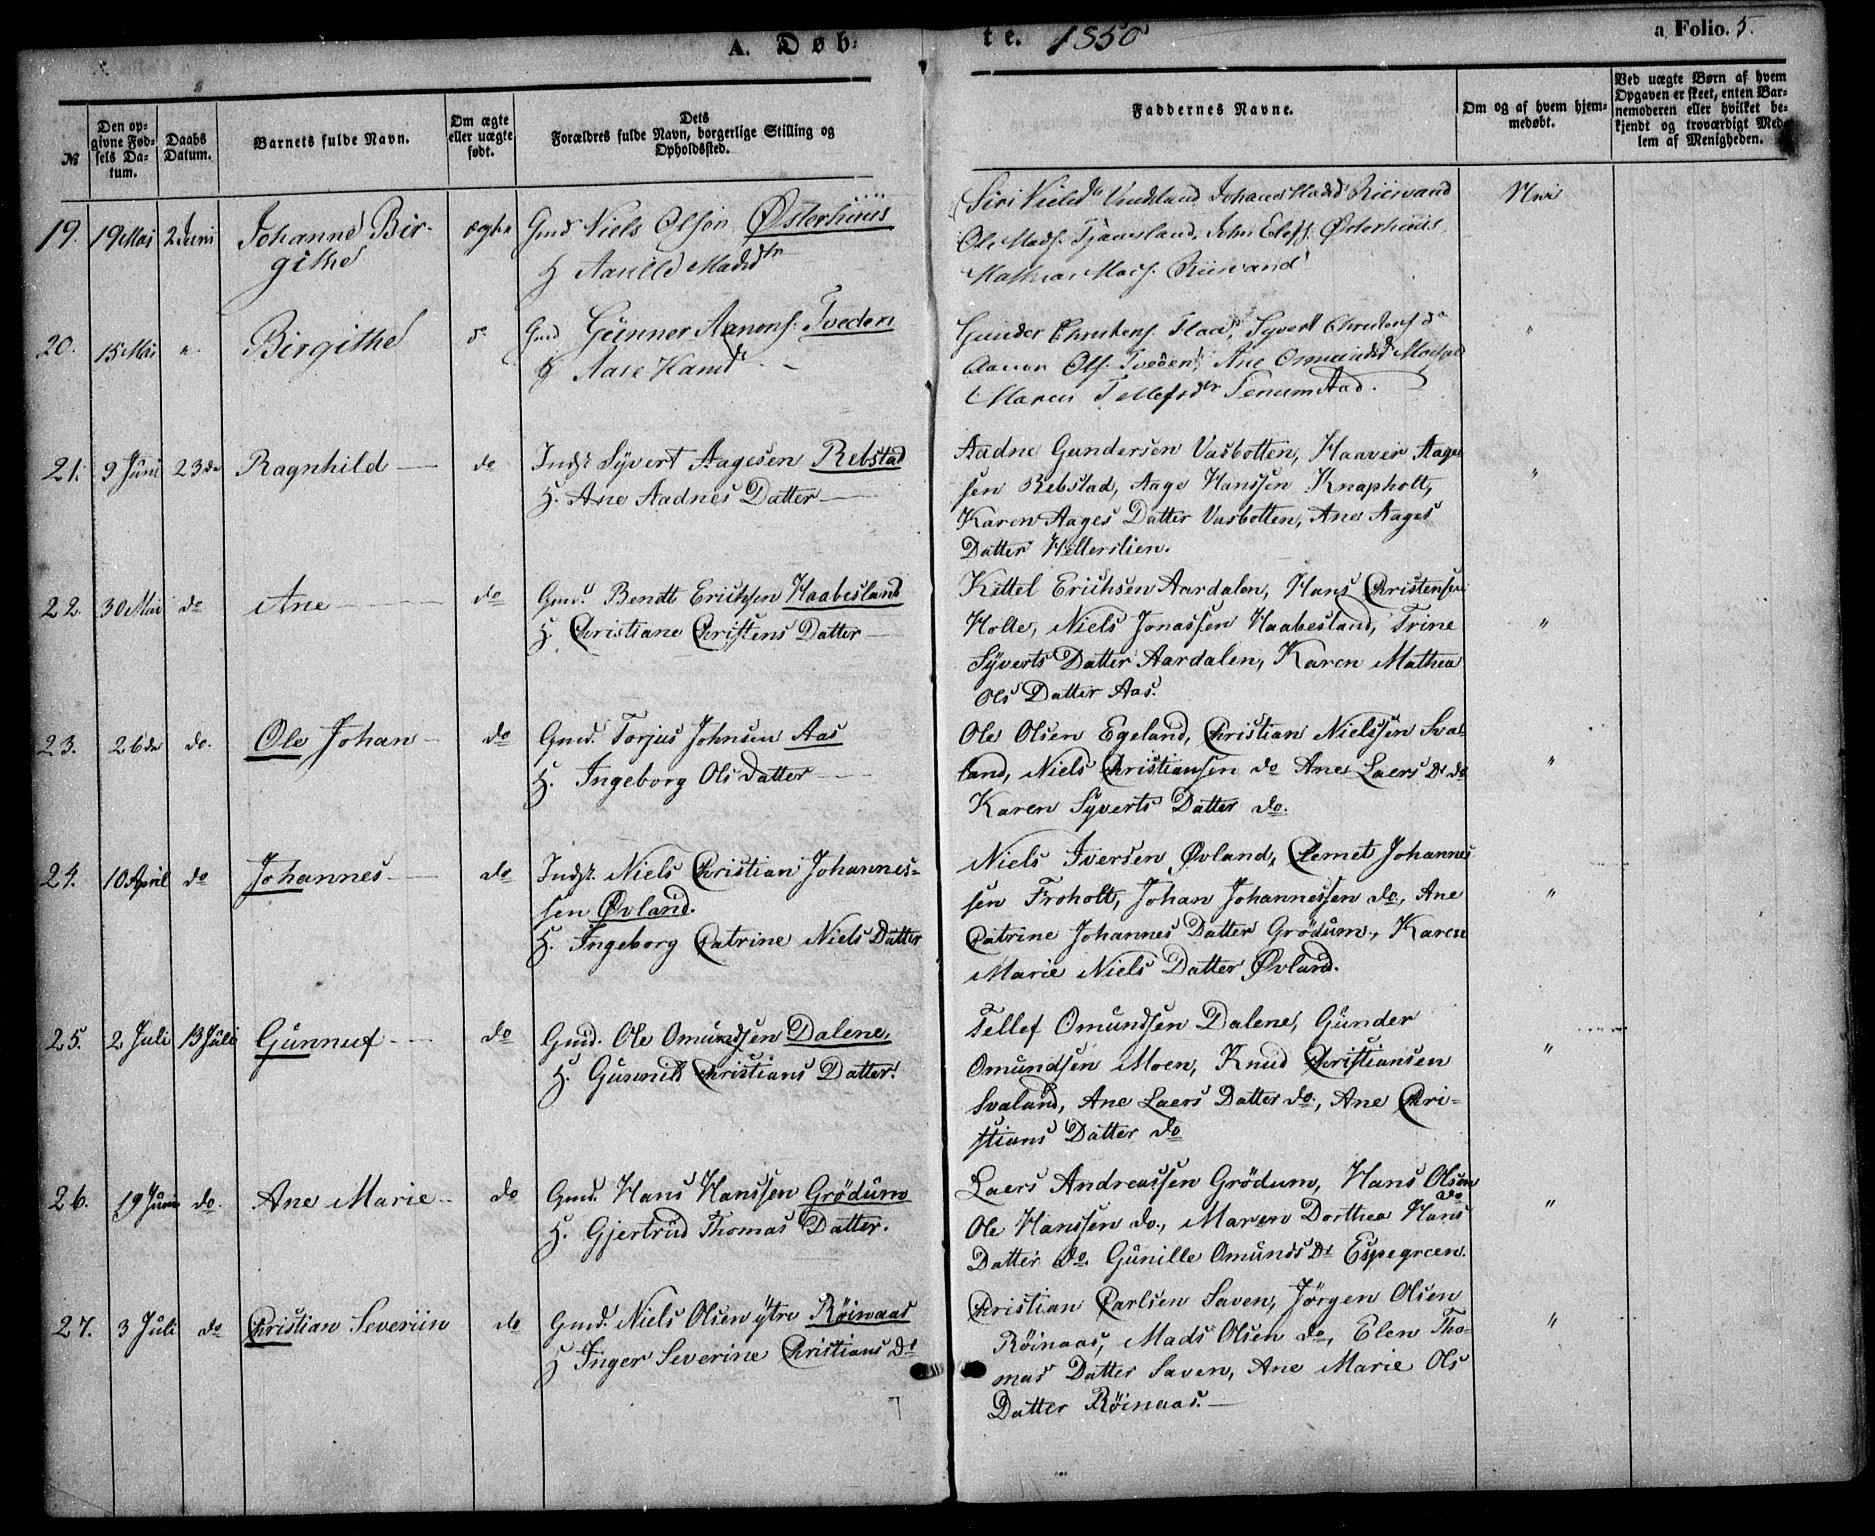 A. Døb-
te. 1850
a Folio. 5.
№
Den op-
givne Fød-
sels Da-
tum.
Daabs
Datum.
Barnets fulde Navn.
Om ægte
eller uægte
født.
Dets
Forældres fulde Navn, borgerlige Stilling og
Opholdssted.
Faddernes Navne.
Om og af hvem hjem-
medøbt.
Ved uægte Børn af hvem
Opgaven er skeet, enten Bar-
nemoderen eller hvilket be-
kjendt og troværdigt Med-
lem af Menigheden.
19. 19 Mai 2 Juni Johanne Bir-
githe
ægte Gmd Niels Olsen Østerhuus
H Aasille Madsdtr
Siri Nielsdr Johanne Madsd Riisvand
Ole Mads. Tjømesland, John Elefs. Østerhuus,
Mathias Mads. Riisvand
20. 15 Mai " Birgithe do Gmd Gunner Aanons: Tveden
H Aase Hansd
Gunder Christens. Flaa, Syvert Christens do
Aanon Ols. Tveden, Ane Osmundsd
Maren Tellefsdtr Senumstad.
"
21. 9 Juni 23de Ragnhild do Indst Syvert Aagesen Rebstad
H. Ane Aadnes Datter
Aadne Gundersen Vasbotten, Haaver Aage
sen Rebstad, Aage Hanssen Knapholt,
Karen Aages Datter Vasbotten, Ane Aages
Datter Hellerslien.
"
22. 30 Mai do Ane do Gmd. Bendt Erichsen Haabesland
H. Christiane Christens Datter
Kittel Erichsen Aardalen, Hans Christensen
Holte, Niels Jonassen Haabesland, Trine
Syverts Datter Aardalen, Karen Mathea
Ols Datter Aas.
"
23. 26de do. Ole Johan do Gmd. Torjus Johnsen Aas
H. Ingeborg Ols Datter
Ole Olsen Egeland, Christian Nielssen Sva-
land, Niels Christiansen do Ane Laers Dr do
Karen Syverts Datter do.
"
24. 10 April do Johannes do Indst. Niels Christian Johannes-
sen Øvland.
H. Ingeborg Catrine Niels Datter
Niels Iversen Øvland, Clemet Johannes
sen Froholt, Johan Johannessen do, Ane
Catrine Johannes Datter Grödum, Karen
Marie Niels Datter Øvland.
"
25. 2 Juli 13 Juli Gunnuf do Gmd. Ole Omundsen Dalene,
H. Gunnild Christians Datter.
Tellef Omundsen Dalene, Gunder
Omundsen Moen, Knud Christiansen
Svaland, Ane Laers Datter do, Ane Chri-
stians Datter do
"
26. 19 Juni do. Ane Marie do Gmd. Hans Hanssen Grödum
H. Gjertrud Thomas Datter.
Laers Andreassen Grödum, Hans Olsen
do
Ole Hanssen do., Maren Dorthea Hans
Datter do. Gunille Omunds Dr Espegreen.
"
27. 3 Juli do Christian Severiin do Gmd. Niels Olsen ytre Röinaas
H Inger Severine Christians Dr
Christian Carlsen Saven, Jörgen Olsen
Röinaas, Mads Olsen do, Elen Tho-
mas Datter Saven, Ane Marie Ols
Datter Röinaas.
"